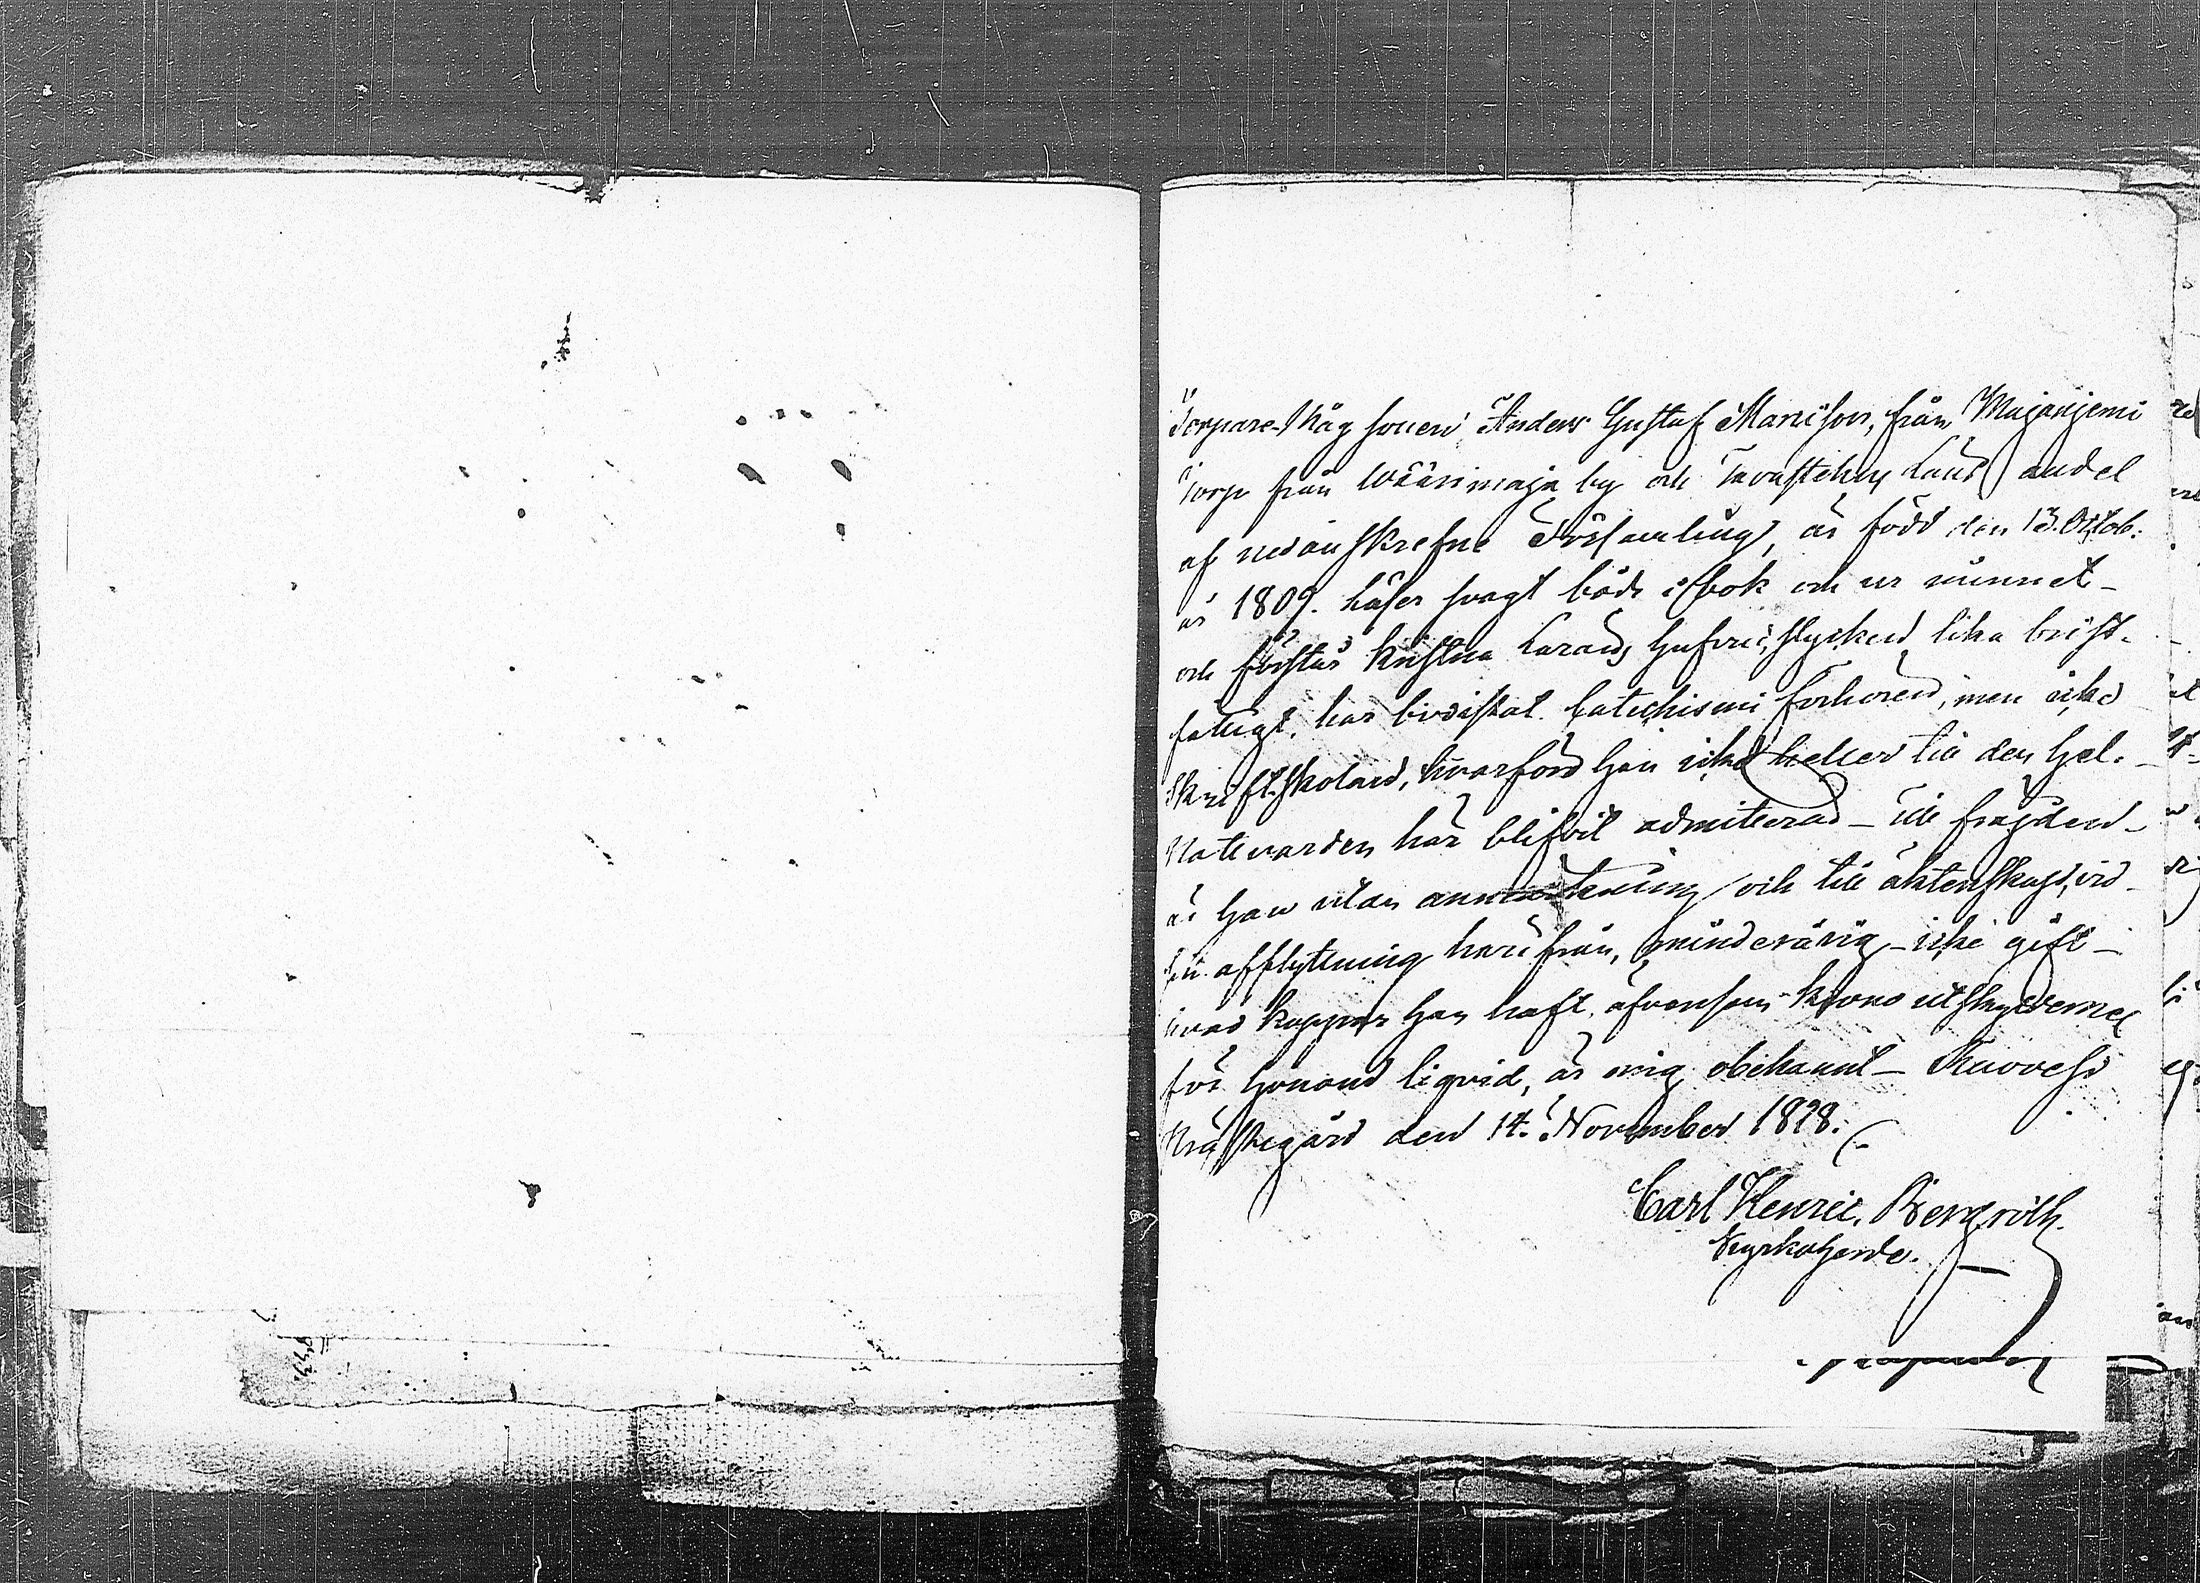 Torpare-Måg sonen Anders Gustaf Mariæson, från Majaniemi
Torp från Wäärimaja by och Tavastehus Läns andel
af nedanskrefne Församling, är född den 13. Octob:
år 1809. läser svagt både i bok och ur minnet –
och förstår kristna Läran, hufvudstycken, lika brist-
fäligt, har bivistat Catechismi förhören, men icke
Skriftskolan, hvarföre han icke heller till den hel.
Nattvarden har blifvit admitterad – Till fräjden –
är han utan anmärkning och till äktenskap, vid
sin afflyttning härifrån, minderårig – icke gift –
hvad koppor han haft, äfvensom krono utskylderne
för honom liqvid, är mig obekannt – Ruovesi
Prästegård den 14. November 1828.
Carl Henric. Bergroth.
Kyrkoherde.